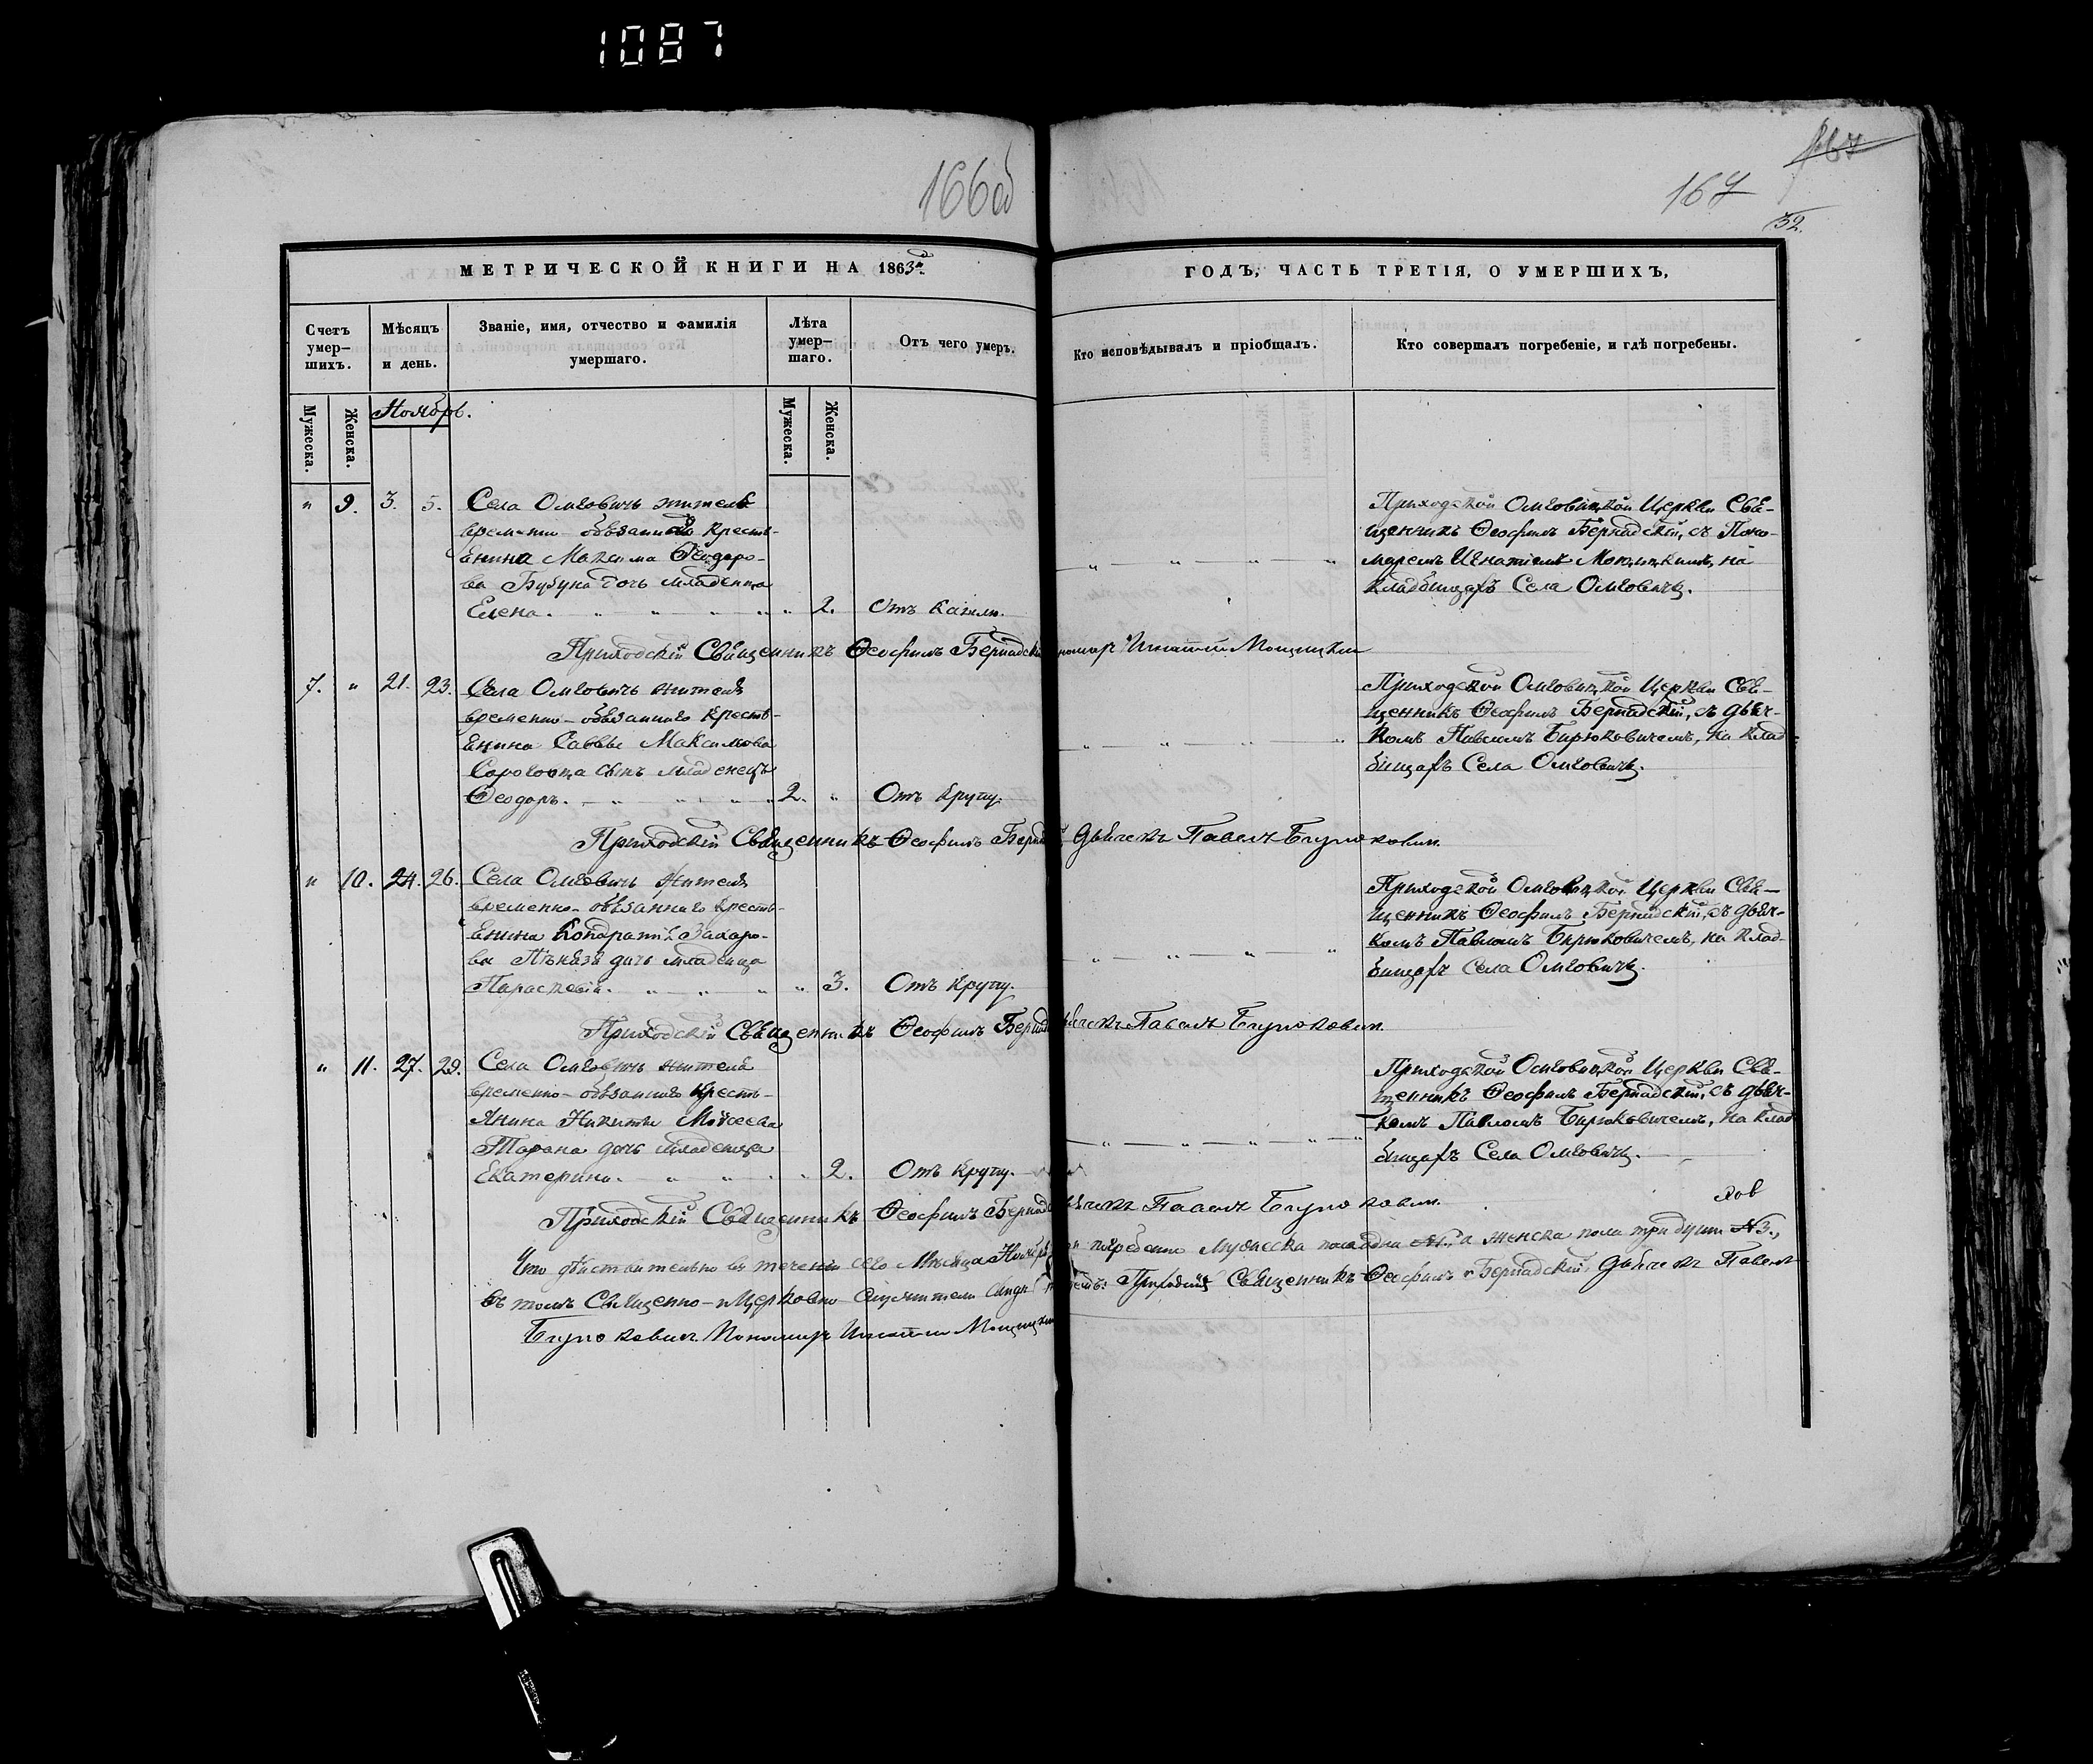 1087
166об
167
167
32.
МЕТРИЧЕСКОЙ КНИГИ НА 1863й.
ГОДЪ, ЧАСТЬ ТРЕТІЯ, О УМЕРШИХЪ,
Счетъ умер-шихъ.
Мѣсяцъ и день.
Званіе, имя, отчество и фамилія умершаго.
Лѣта умер-шаго.
Отъ чего умеръ.
Кто исповѣдывалъ и пріобщалъ.
Кто совершалъ погребеніе, и гдѣ погребены.
Мужеска.
Женска.
Ноябрь.
Мужеска.
Женска.
" 9. 3. 5. Села Омговичъ жителя
временно-обязаннаго крестъ-
янина Максима Ѳеодоро-
ва дочь младенца
Елена. " " " " " 2. Отъ кашлю.
" " " "
Приходской Омговицкой Церкви Свя-
щенникъ Ѳеофилъ Бернадскій, съ Поно-
маремъ Игнатіемъ Мощицкимъ, на
кладбищахъ Села Омговичъ.
Приходскій Священникъ Ѳеофилъ Бернадскій Игнатій Мощицкій
7. " 21. 23. Села Омговичъ жителя
временно-обязаннаго крестъ-
янина Саввы Максимова
сынъ младенецъ
Ѳеодоръ. " " " " 2. " Отъ крупу.
" " " "
Приходской Омговицкой Церкви Свя-
щенникъ Ѳеофилъ Бернадскій, съ дьяч-
комъ Павломъ Бирюковичемъ, на клад-
бищахъ Села Омговичъ.
Приходскій Священникъ Ѳеофилъ Дьячекъ Павелъ Бирюковичъ.
" 10. 24. 26. Села Омговичъ жителя
временно-обязаннаго крестъ-
янина Кондратія Захаро-
ва дочь младенца
Параскевія. " " " " 3. Отъ крупу.
" " " "
Приходской Омговицкой Церкви Свя-
щенникъ Ѳеофилъ Бернадскій, съ дьяч-
комъ Павломъ Бирюковичемъ, на клад-
бищахъ Села Омговичъ.
Приходскій Священникъ Ѳеофилъ Павелъ Бирюковичъ.
" 11. 27. 29. Села Омговичъ жителя
временно-обязаннаго кресть-
янина Никиты Моисеева
Тарана дочь младенца
Екатерина. " " " 2. Отъ крупу.
" " " " "
Приходской Омговицкой Церкви Свя-
щенникъ Ѳеофилъ Бернадскій, съ дьяч-
комъ Павломъ Бирюковичемъ, на клад-
бищахъ Села Омговичъ.
Приходскій Священникъ Ѳеофилъ Павелъ Бирюковичъ.
Что дѣйствительно въ теченіи сего Мѣсяца Ноября погребено Мужеска пола а женска пола три души №3.,
въ томъ Священно-и Церковно-служители Приходскій Священникъ Ѳеофилъ Бернадскій, Дьячекъ Павелъ
Бирюковичъ. Пономарь Игнатій Мощицкій